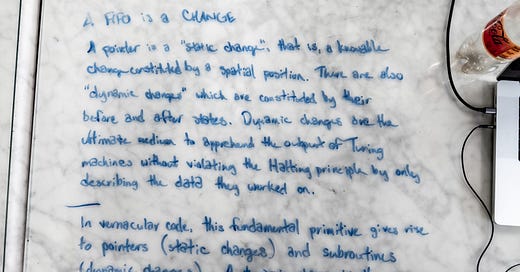 A FIFO is a CHANGE
A pointer is a "static change", that is, a knowable
change constituted by a spatial position. There are also
"dynamic changes" which are constituted by their
before and after states. Dynamic changes are the
ultimate medium to apprehend the output of Turing
machines without violating the Halting principle by only
describing the data they worked on.
In vernacular code, this fundamental primitive gives rise
to pointers (static changes) and subroutines
(dynamic changes).